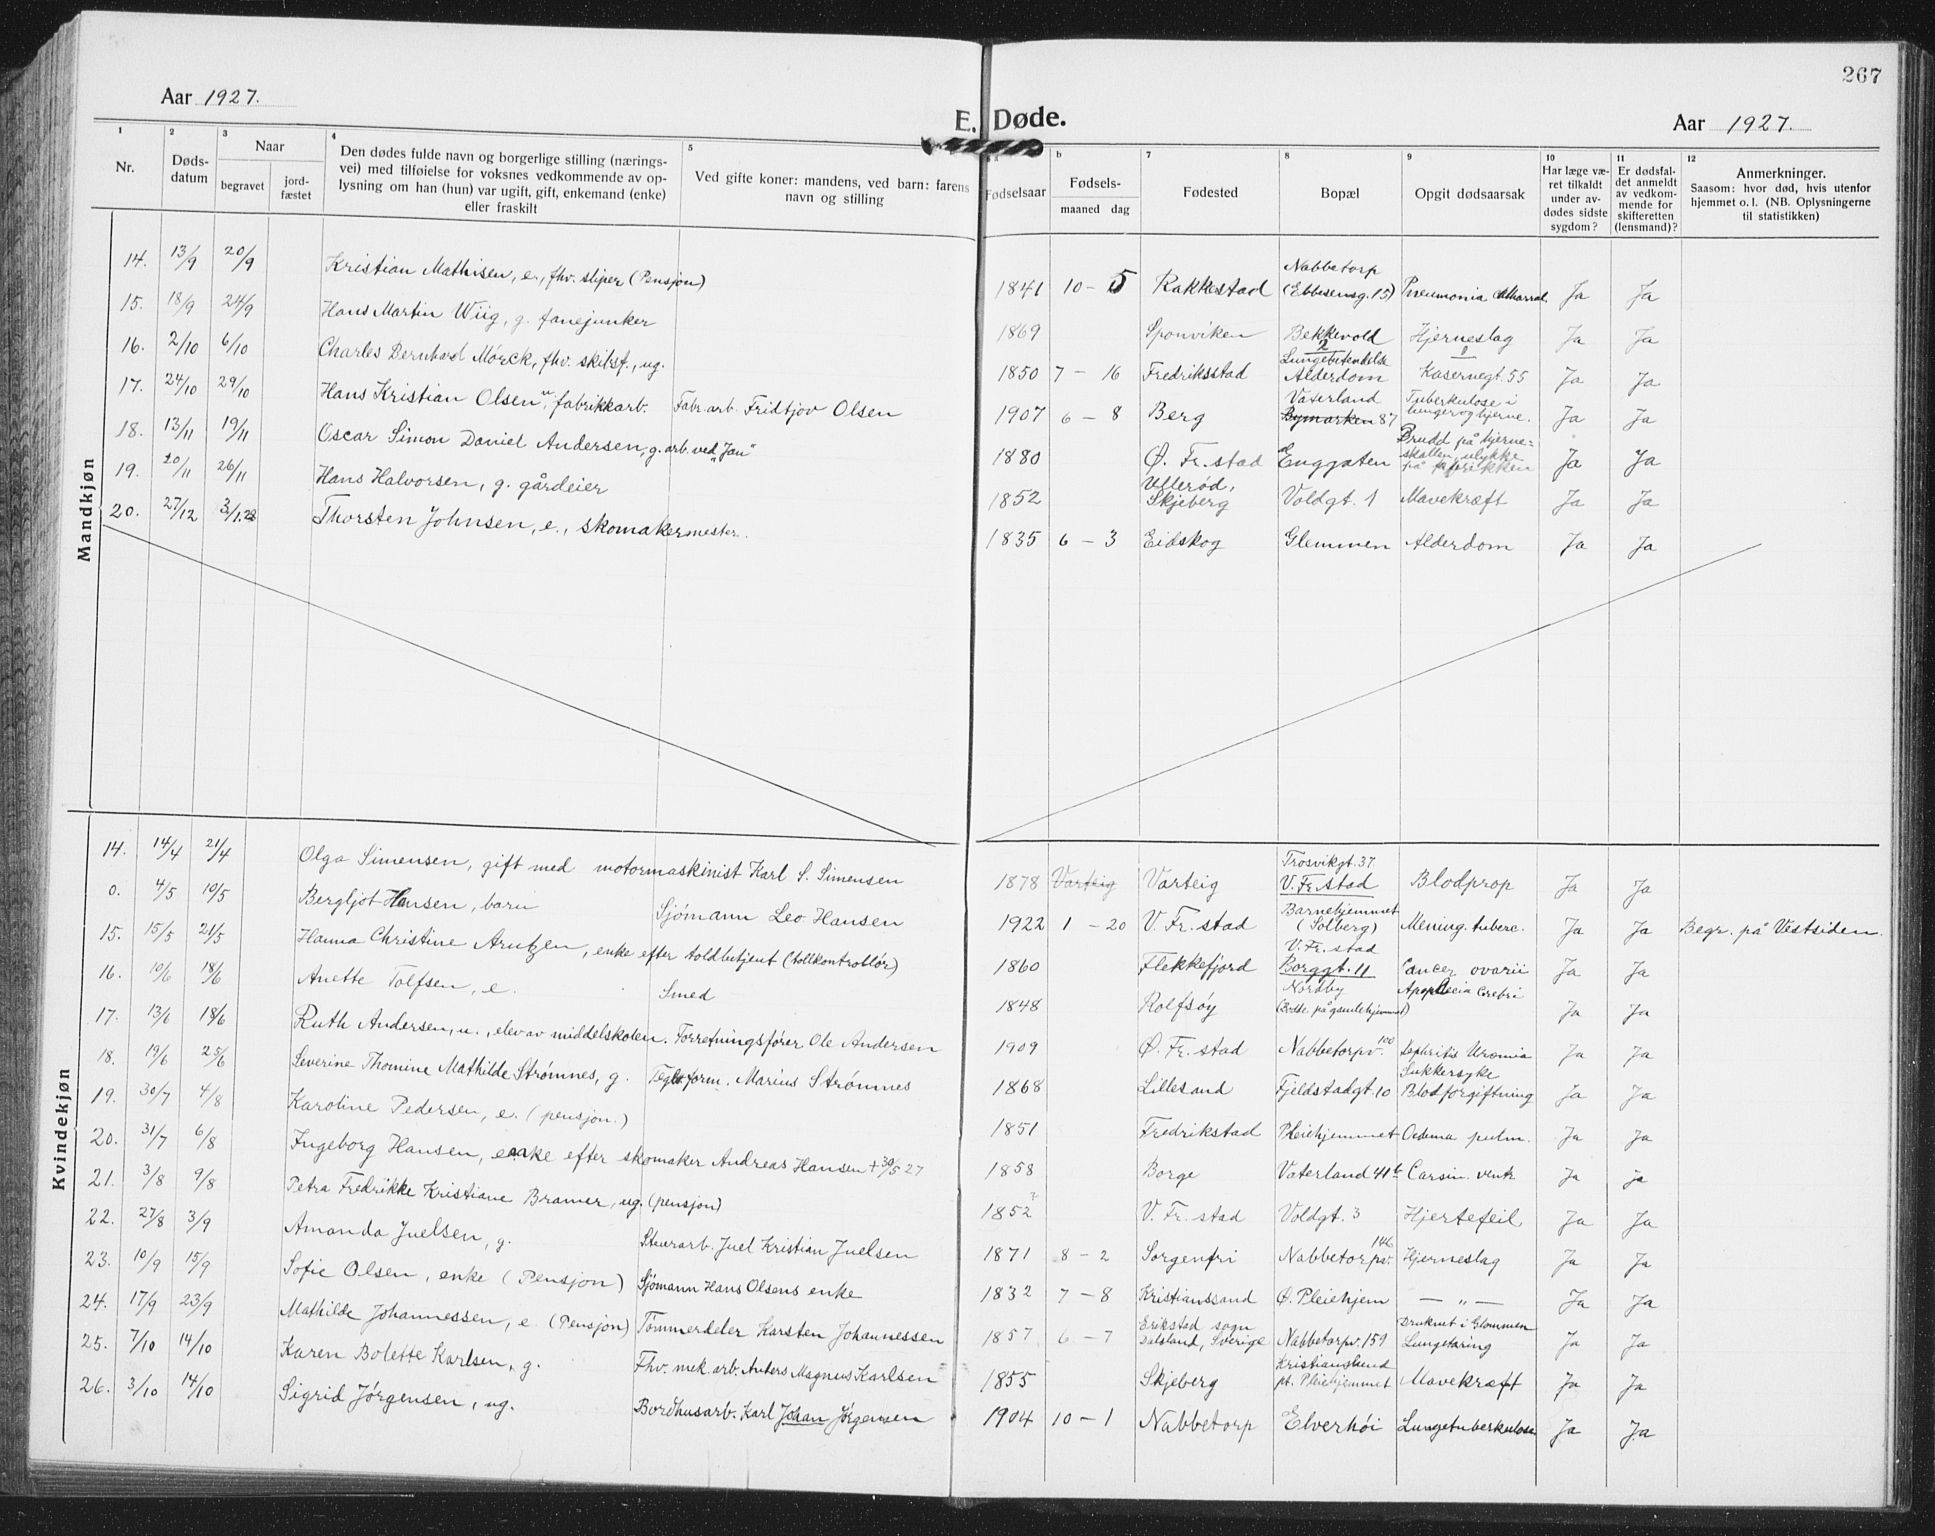 267
Aar 1927.
E. Døde.
Aar 1927.
1 Nr.
2 Døds-datum
3 Naar begravet jord-fæstet
4 Den dødes fulde navn og borgerlige stilling (nærings-vei) med tilføielse for voksnes vedkommende av op-lysning om han (hun) var ugift, gift, enkemand (enke) eller fraskilt
5 Ved gifte koner: mandens, ved barn: farens navn og stilling
Fødselsaar
b Fødsels- maaned dag
7 Fødested
8 Bopæl
9 Opgit dødsaarsak
10 Har læge væ-ret tilkaldt under av-dødes sidste sygdom?
11 Er dødsfal-det anmeldt av vedkom-mende for skifteretten (lensmand)?
12 Anmerkninger. Saasom: hvor død, hvis utenfor hjemmet o. l. (NB. Oplysningerne til statistikken)
Mandkjøn
14. 13/9 20/9 Kristian Mathisen, e., fhv. sliper (Pensjon) 1841 10 - 5 Rakkestad Nabbetorp (Ebbesensg. 15) Pneumonia Ja Ja
15. 18/9 24/9 Hans Martin Wiig, g. fanejunker 1869 Sponviken Bekkevold Hjerneslag Ja Ja
16. 2/10 6/10 Charles Bernhard Mørck, fhv. skibsf., ug. 1850 7 - 16 Fredriksstad Lungebetendelse Alderdom Kasernegt. 55 Ja Ja
17. 24/10 29/10 Hans Kristian Olsen, u, fabrikkarb. Fabr. arb. Fridtjov Olsen 1907 6 - 8 Berg Vaterland Bymarken 87 Tuberkulose i lunger og hjerne. Ja Ja
18. 13/11 19/11 Oscar Simon Daniel Andersen, g. arb. ved "Jau" 1880 Ø. Fr. stad Enggaten Brudd på hjerne-skallen, ulykke på fabrikken Ja Ja
19. 20/11 26/11 Hans Halvorsen, g. gårdeier 1852 Ullerød, Skjeberg Voldgt. 1 Mavekræft Ja Ja
20. 27/12 3/1.28 Thorsten Johnsen, e., skomakermester. 1835 6 - 3 Eidskog Glemmen Alderdom Ja Ja
Kvindekjøn
14. 14/4 21/4 Olga Simensen, gift med motormaskinist Karl S. Simensen 1878 Varteig Varteig Trosvikgt. 37 V. Fr. stad Blodprop Ja Ja
0. 4/5 10/5 Bergljot Hansen, barn Sjømann Leo Hansen 1922 1 - 20 V. Fr. stad Barnehjemmet (Solberg) Mening. tuberc. Ja Ja Begr. på Vestsiden.
15. 15/5 21/5 Hanna Christine Arntzen, enke efter toldbetjent (tollkontrollør) 1860 Flekkefjord V. Fr. stad Borggt. 11 Cancer ovarii Ja Ja
16. 10/6 18/6 Anette Tolfsen, e. Smed 1848 Rolfsøy Nordby (Bodde på gamlehjemmet) Apoplecia Cerebri Ja Ja
17. 13/6 18/6 Ruth Andersen, u., elev av middelskolen. Forretningsfører Ole Andersen 1909 Ø. Fr. stad Nabbetorpv. 100 Nephritis Uræmia Ja Ja
18. 19/6 25/6 Severine Thomine Mathilde Strømnes, g. Teglv. form. Marius Strømnes 1868 Lillesand Fjeldstadgt. 10 Sukkersyke Blodforgiftning Ja Ja
19. 30/7 4/8 Karoline Pedersen, e. (pensjon.) 1851 Fredrikstad Pleiehjemmet Oedema pulm. Ja Ja
20. 31/7 6/8 Ingeborg Hansen, enke efter skomaker Andreas Hansen + 30/5 27 1858 Borge Vaterland 41b Carsin. ventr. Ja ja
21. 3/8 9/8 Petra Fredrikke Kristiane Bramer, ug. (pensjon) 1852 ? V. Fr. stad Voldgt. 3 Hjertefeil Ja Ja
22. 27/8 3/9 Amanda Juelsen, g. Stuerarb. Juel Kristian Juelsen 1871 8 - 2 Sorgenfri Nabbetorpv. 146 Hjerneslag Ja Ja
23. 10/9 15/9 Sofie Olsen, enke (Pensjon) Sjømann Hans Olsens enke 1832 7 - 8 Kristianssand Ø. Pleiehjem — " — Ja Ja
24. 17/9 23/9 Mathilde Johannessen, e. (Pensjon) Tømmerdeler Karsten Johannessen 1857 6 - 7 Erikstad sogn Dalsland, Sverige Nabbetorpv. 159 Druknet i Glommen Lungetæring Ja Ja
25. 7/10 14/10 Karen Bolette Karlsen, g. Fhv. mek. arb. Anters Magnus Karlsen 1855 Skjeberg Kristianslund pt. Pleiehjemmet Mavekræft Ja Ja
26. 3/10 14/10 Sigrid Jørgensen, ug. Bordhusarb. Karl Johan Jørgensen 1904 10 - 1 Nabbetorp Elverhøi Lungetuberkulose Ja Ja